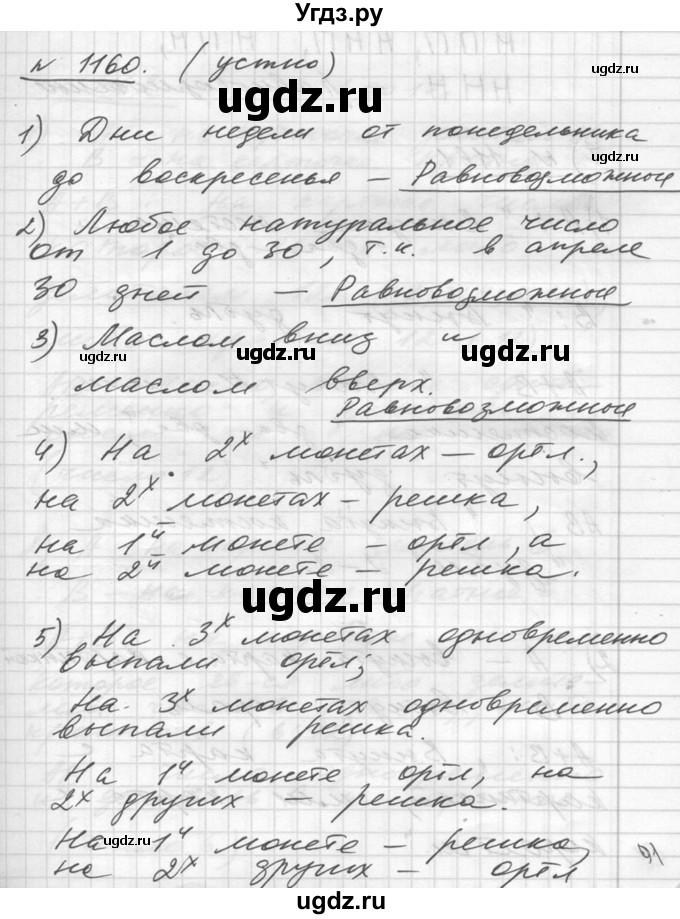 Угдз.ру
№ 1160. (устно)
ugdz.ru
ugdz.ru
1) Дни недели от понедельника
ugdz.ru
до воскресенья – Равновозможные
2) Любое натуральное число
от 1 до 30, т.к. в апреле
30 дней – Равновозможные
3) Маслом вниз и
ugdz.ru ugdz.ru ugdz.ru
маслом вверх.
Равновозможные
4) На 2х монетах – орёл.,
на 2х монетах – решка,
на 1й монете – орёл, а
на 2й монете – решка.
ugdz.ru
5) На 3х монетах одновременно
выпали орёл;
На 3х монетах одновременно
выпали решка.
На 1й монете орёл, на
ugdz.ru
2х других – решка.
ugdz.ru
На 1й монете – решка,
ugdz.ru
на 2х других – орёл